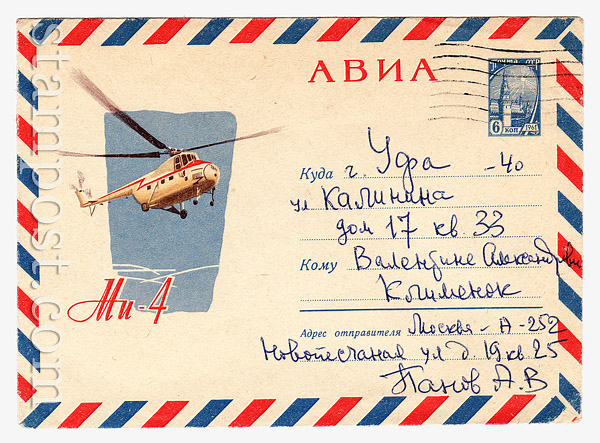 АВИА
ПОЧТА СССР
6 КОП
Куда г. Уфа -40
ул Калинина
дом 17 кв. 33
Кому Валентине Александровне
Клименок
Адрес отправителя Москва-А-252
Новопесчаная ул д. 19 кв. 25
Панов А.В
Ми-4
stampost.com